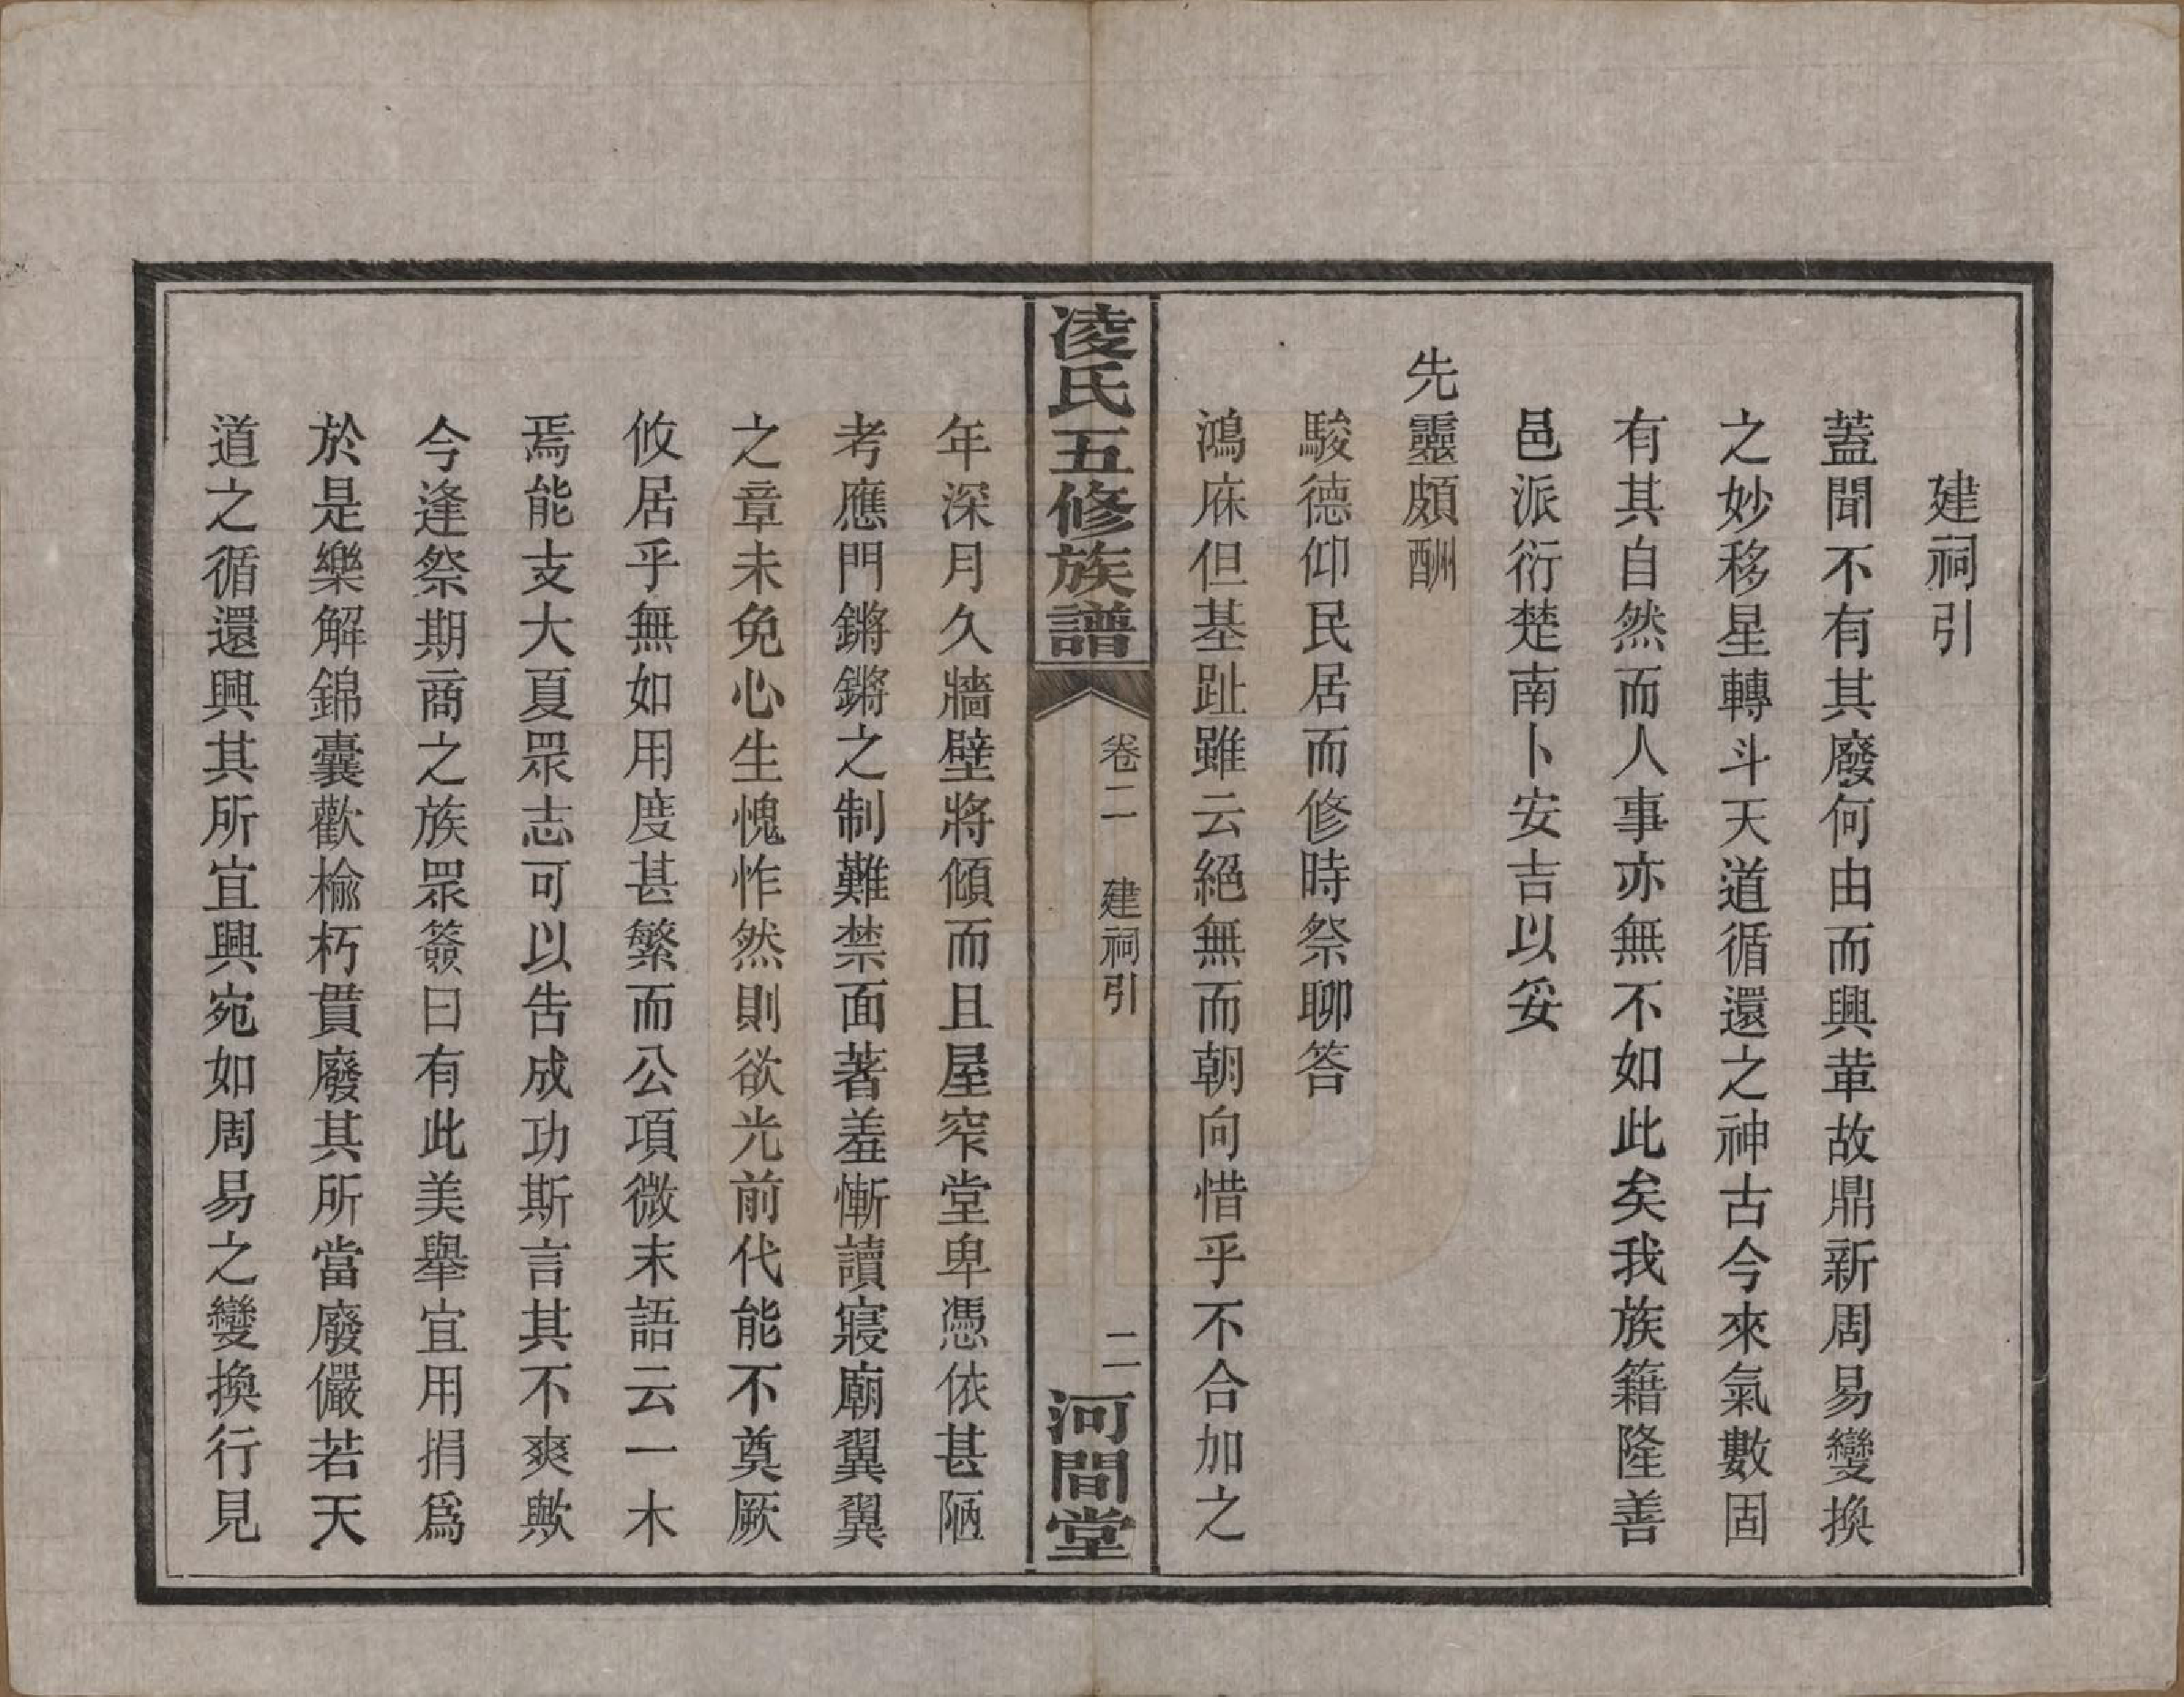 建祠引
蓋聞不有其廢何由而興革故鼎新周易變換
之妙移星轉斗天道循還之神古今來氣數固
有其自然而人事亦無不如此矣我族籍隆善
邑派衍楚南卜安吉以妥
先靈頗酬
駿德仰民居而修時祭聊答
鴻庥但基趾雖云絕無而朝向惜乎不合加之
凌氏五修族譜
卷二
建祠引
二
河間堂
年深月久牆壁將傾而且屋窄堂卑憑依甚陋
考應門鏘鏘之制難禁面著羞慚讀寢廟翼翼
之章未免心生愧怍然則欲光前代能不奠厥
攸居乎無如用度甚繁而公項微末語云一木
焉能支大夏眾志可以告成功斯言其不爽歟
今逢祭期商之族眾簽曰有此美舉宜用捐爲
於是樂解錦囊歡揄朽貫廢其所當廢儼若天
道之循還興其所宜興宛如周易之變換行見